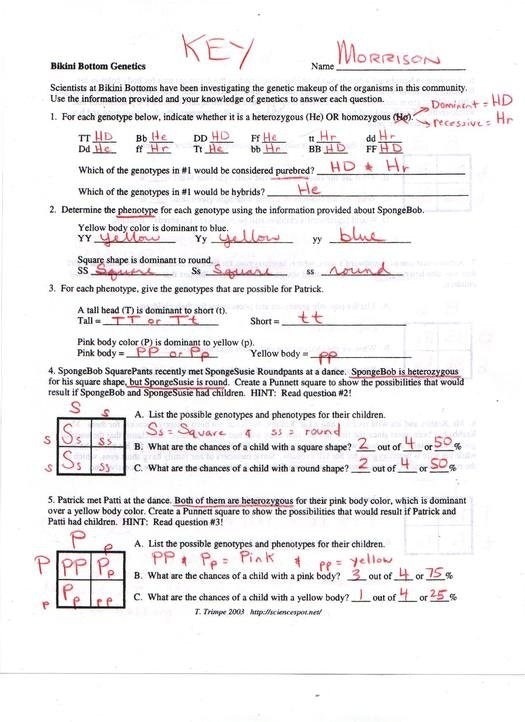 KEY
Bikini Bottom Genetics Name MORRISON
Scientists at Bikini Bottoms have been investigating the genetic makeup of the organisms in this community.
Use the information provided and your knowledge of genetics to answer each question.
Dominent = HD
1. For each genotype below, indicate whether it is a heterozygous (He) OR homozygous (Ho). recessive = Hr
TT HD Bb He DD HD Ff He tt Hr dd Hr
Dd He ff Hr Tt He bb Hr BB HD FF HD
Which of the genotypes in #1 would be considered purebred? HD & Hr
Which of the genotypes in #1 would be hybrids? He
2. Determine the phenotype for each genotype using the information provided about SpongeBob.
Yellow body color is dominant to blue.
YY yellow Yy yellow yy blue
Square shape is dominant to round.
SS Square Ss Square ss round
3. For each phenotype, give the genotypes that are possible for Patrick.
A tall head (T) is dominant to short (t).
Tall = TT or Tt Short = tt
Pink body color (P) is dominant to yellow (p).
Pink body = PP or Pp Yellow body = pp
4. SpongeBob SquarePants recently met SpongeSusie Roundpants at a dance. SpongeBob is heterozygous
for his square shape, but SpongeSusie is round. Create a Punnett square to show the possibilities that would
result if SpongeBob and SpongeSusie had children. HINT: Read question #2!
S s
A. List the possible genotypes and phenotypes for their children.
Ss = Square & ss = round
s Ss ss
B. What are the chances of a child with a square shape? 2 out of 4 or 50 %
s Ss ss
C. What are the chances of a child with a round shape? 2 out of 4 or 50 %
5. Patrick met Patti at the dance. Both of them are heterozygous for their pink body color, which is dominant
over a yellow body color. Create a Punnett square to show the possibilities that would result if Patrick and
Patti had children. HINT: Read question #3!
P p
A. List the possible genotypes and phenotypes for their children.
PP & Pp = Pink & pp = yellow
P PP Pp
B. What are the chances of a child with a pink body? 3 out of 4 or 75 %
p Pp pp
C. What are the chances of a child with a yellow body? 1 out of 4 or 25 %
T. Trimpe 2003 http://sciencespot.net/